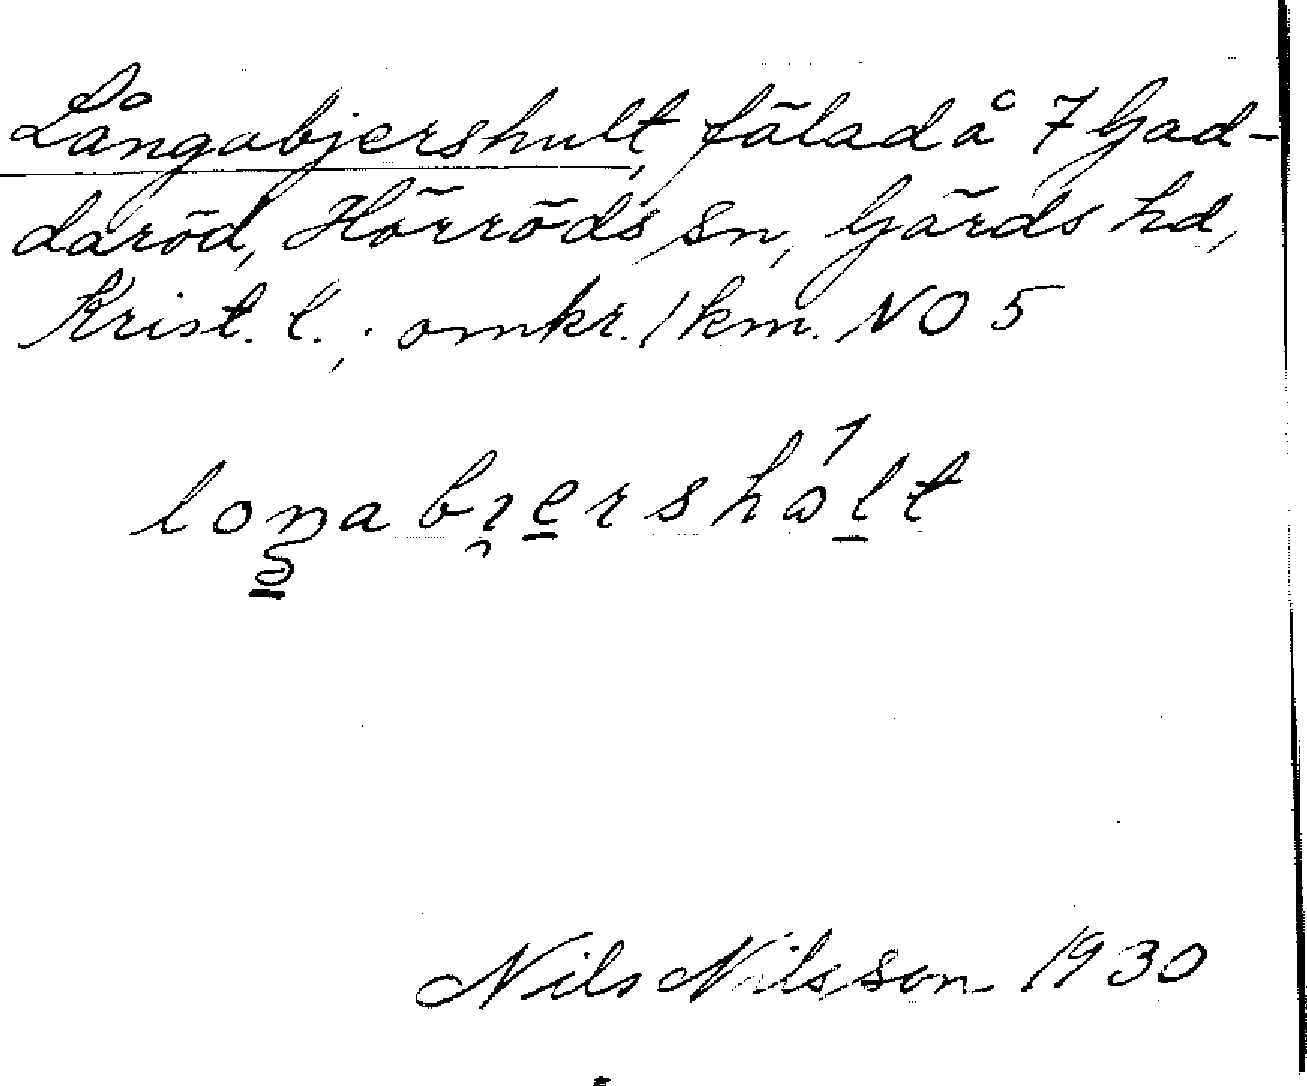 Långabjershult, fälad å 7 Gad-
daröd, Hörröds sn, Gärds hd,
Krist. l.; omkr. 1 km. NO 5
loŋabɪ̯ersholt
Nils Nilsson 1930